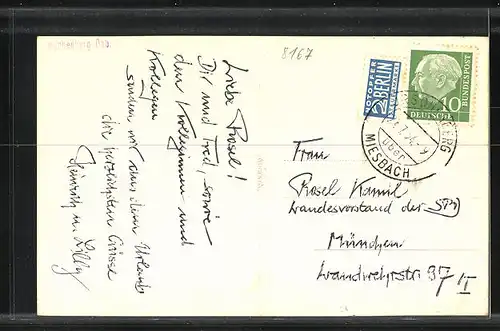 8167
Liebe Rosel!
Dir und Fred, sowie
den Kolleginnen und
Kollegen
senden wir aus dem Urlaub
die herzlichsten Grüsse
Heinrich u. Lilly
NOTOPFER
2 BERLIN
STEUERMARKE
10
DEUTSCHE
BUNDESPOST
BERG
über
MIESBACH
Frau
Rosel Kamil
Landesvorstand der SPD
München
Landwehrstr 37/II